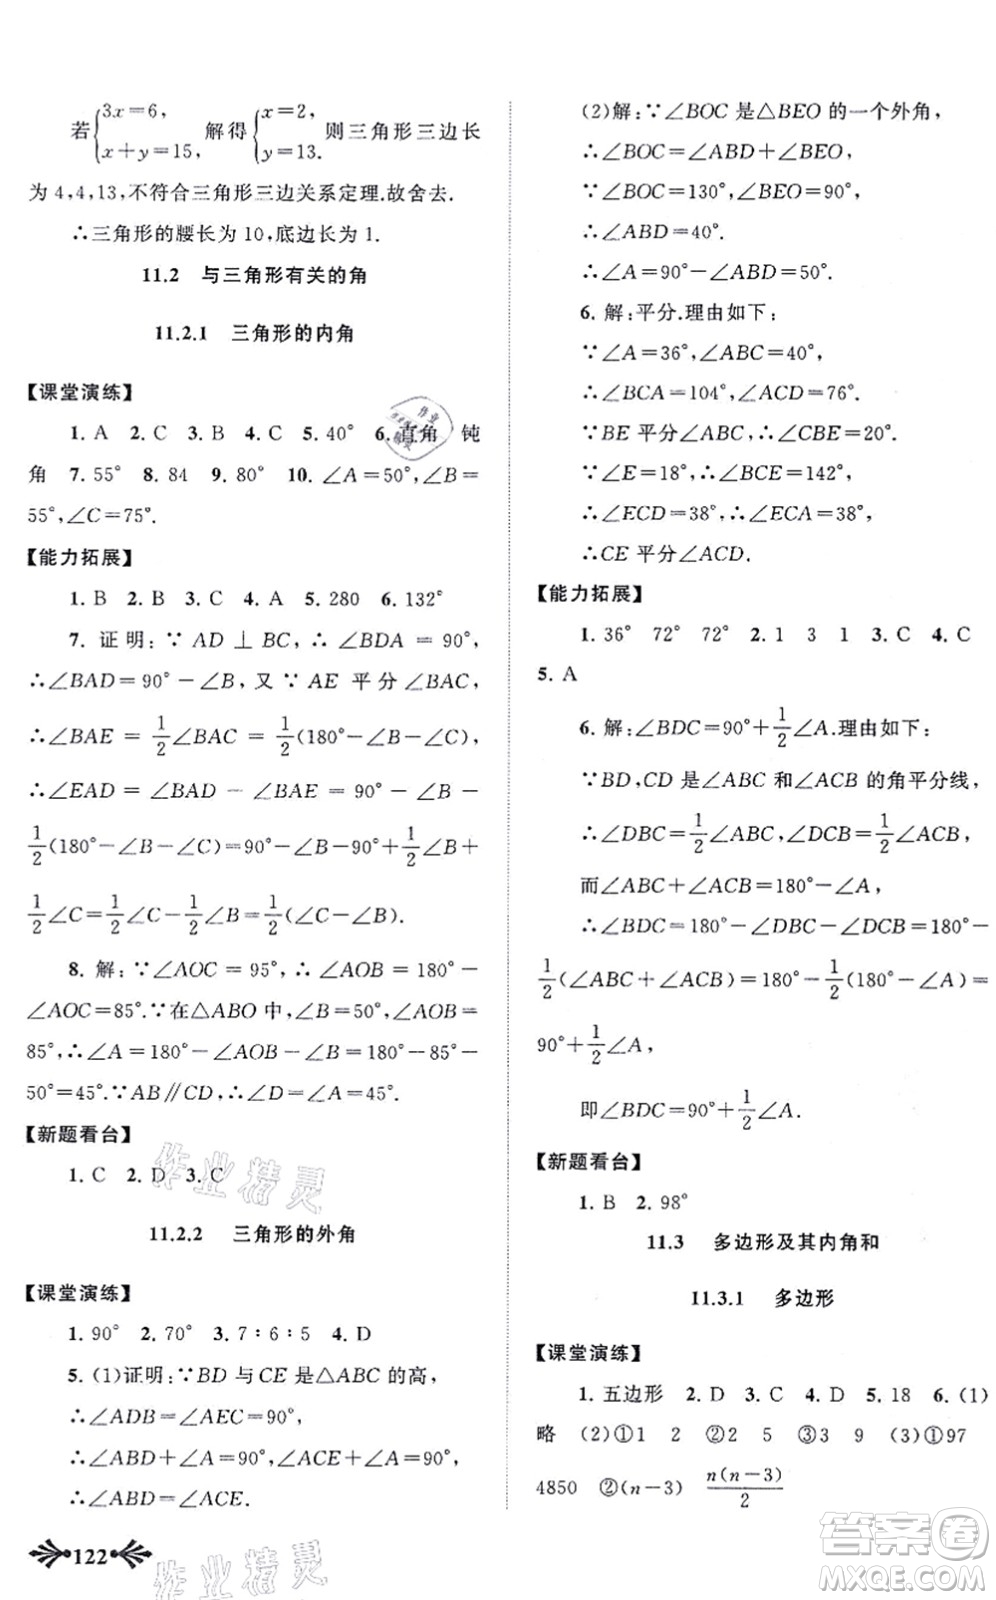 若{3x=6, x+y=15, 解得{x=2, y=13. 则三角形三边长
为 4,4,13,不符合三角形三边关系定理.故舍去.
∴三角形的腰长为 10,底边长为 1.
11.2 与三角形有关的角
11.2.1 三角形的内角
【课堂演练】
1. A 2. C 3. B 4. C 5. 40° 6. 直角 钝
角 7. 55° 8. 84 9. 80° 10. ∠A=50°,∠B=
55°,∠C=75°.
【能力拓展】
1. B 2. B 3. C 4. A 5. 280 6. 132°
7. 证明:∵ AD ⊥ BC,∴ ∠BDA = 90°,
∴∠BAD=90°-∠B,又∵ AE 平分∠BAC,
∴∠BAE=1/2∠BAC=1/2(180°-∠B-∠C),
∴∠EAD = ∠BAD - ∠BAE = 90° -
1/2(180°-∠B-∠C)=90°-∠B-90°+1/2∠B+
1/2∠C=1/2∠C-1/2∠B=1/2(∠C-∠B).
8. 解:∵∠AOC = 95°,∴∠AOB = 180° -
∠AOC=85°.∵在△ABO 中,∠B=50°,∠AOB=
85°,∴∠A=180°-∠AOB-∠B=180°-85°-
50°=45°.∵AB∥CD,∴∠D=∠A=45°.
【新题看台】
1. C 2. D 3. C
11.2.2 三角形的外角
【课堂演练】
1. 90° 2. 70° 3. 7∶6∶5 4. D
5. (1)证明:∵BD 与 CE 是△ABC 的高,
∴∠ADB=∠AEC=90°,
∴∠A+∠ABD=90°,∠ACE+∠A=90°,
∴∠ABD=∠ACE.
122
(2)解:∵∠BOC 是△BEO 的一个外角,
∴∠BOC=∠ABD+∠BEO,
∵∠BOC=130°,∠BEO=90°,
∴∠ABD=40°.
∴∠A=90°-∠ABD=50°.
6. 解:平分.理由如下:
∵∠A=36°,∠ABC=40°,
∴∠BCA=104°,∠ACD=76°.
∵BE 平分∠ABC,∴∠CBE=20°.
∵∠E=18°,∴∠BCE=142°,
∴∠ECD=38°,∴∠ECA=38°,
∴CE 平分∠ACD.
【能力拓展】
1. 36° 72° 72° 2. 1 3 1 3. C 4. C
5. A
6. 解:∠BDC=90°+1/2∠A.理由如下:
∵BD,CD 是∠ABC 和∠ACB 的角平分线,
∴∠DBC=1/2∠ABC,∠DCB=1/2∠ACB,
而∠ABC+∠ACB=180°-∠A,
∴∠BDC=180°-∠DBC-∠DCB=180°-
1/2(∠ABC+∠ACB)=180°-1/2(180°-∠A)=
90°+1/2∠A,
即∠BDC=90°+1/2∠A.
【新题看台】
1. B 2. 98°
11.3 多边形及其内角和
11.3.1 多边形
【课堂演练】
1. 五边形 2. D 3. C 4. D 5. 18 6. (1)
略 (2)①1 2 ②2 5 ③3 9 (3)①97
4850 ②(n-3) n(n-3)/2
作业精灵
作业精灵
答案圈
MXQE.COM